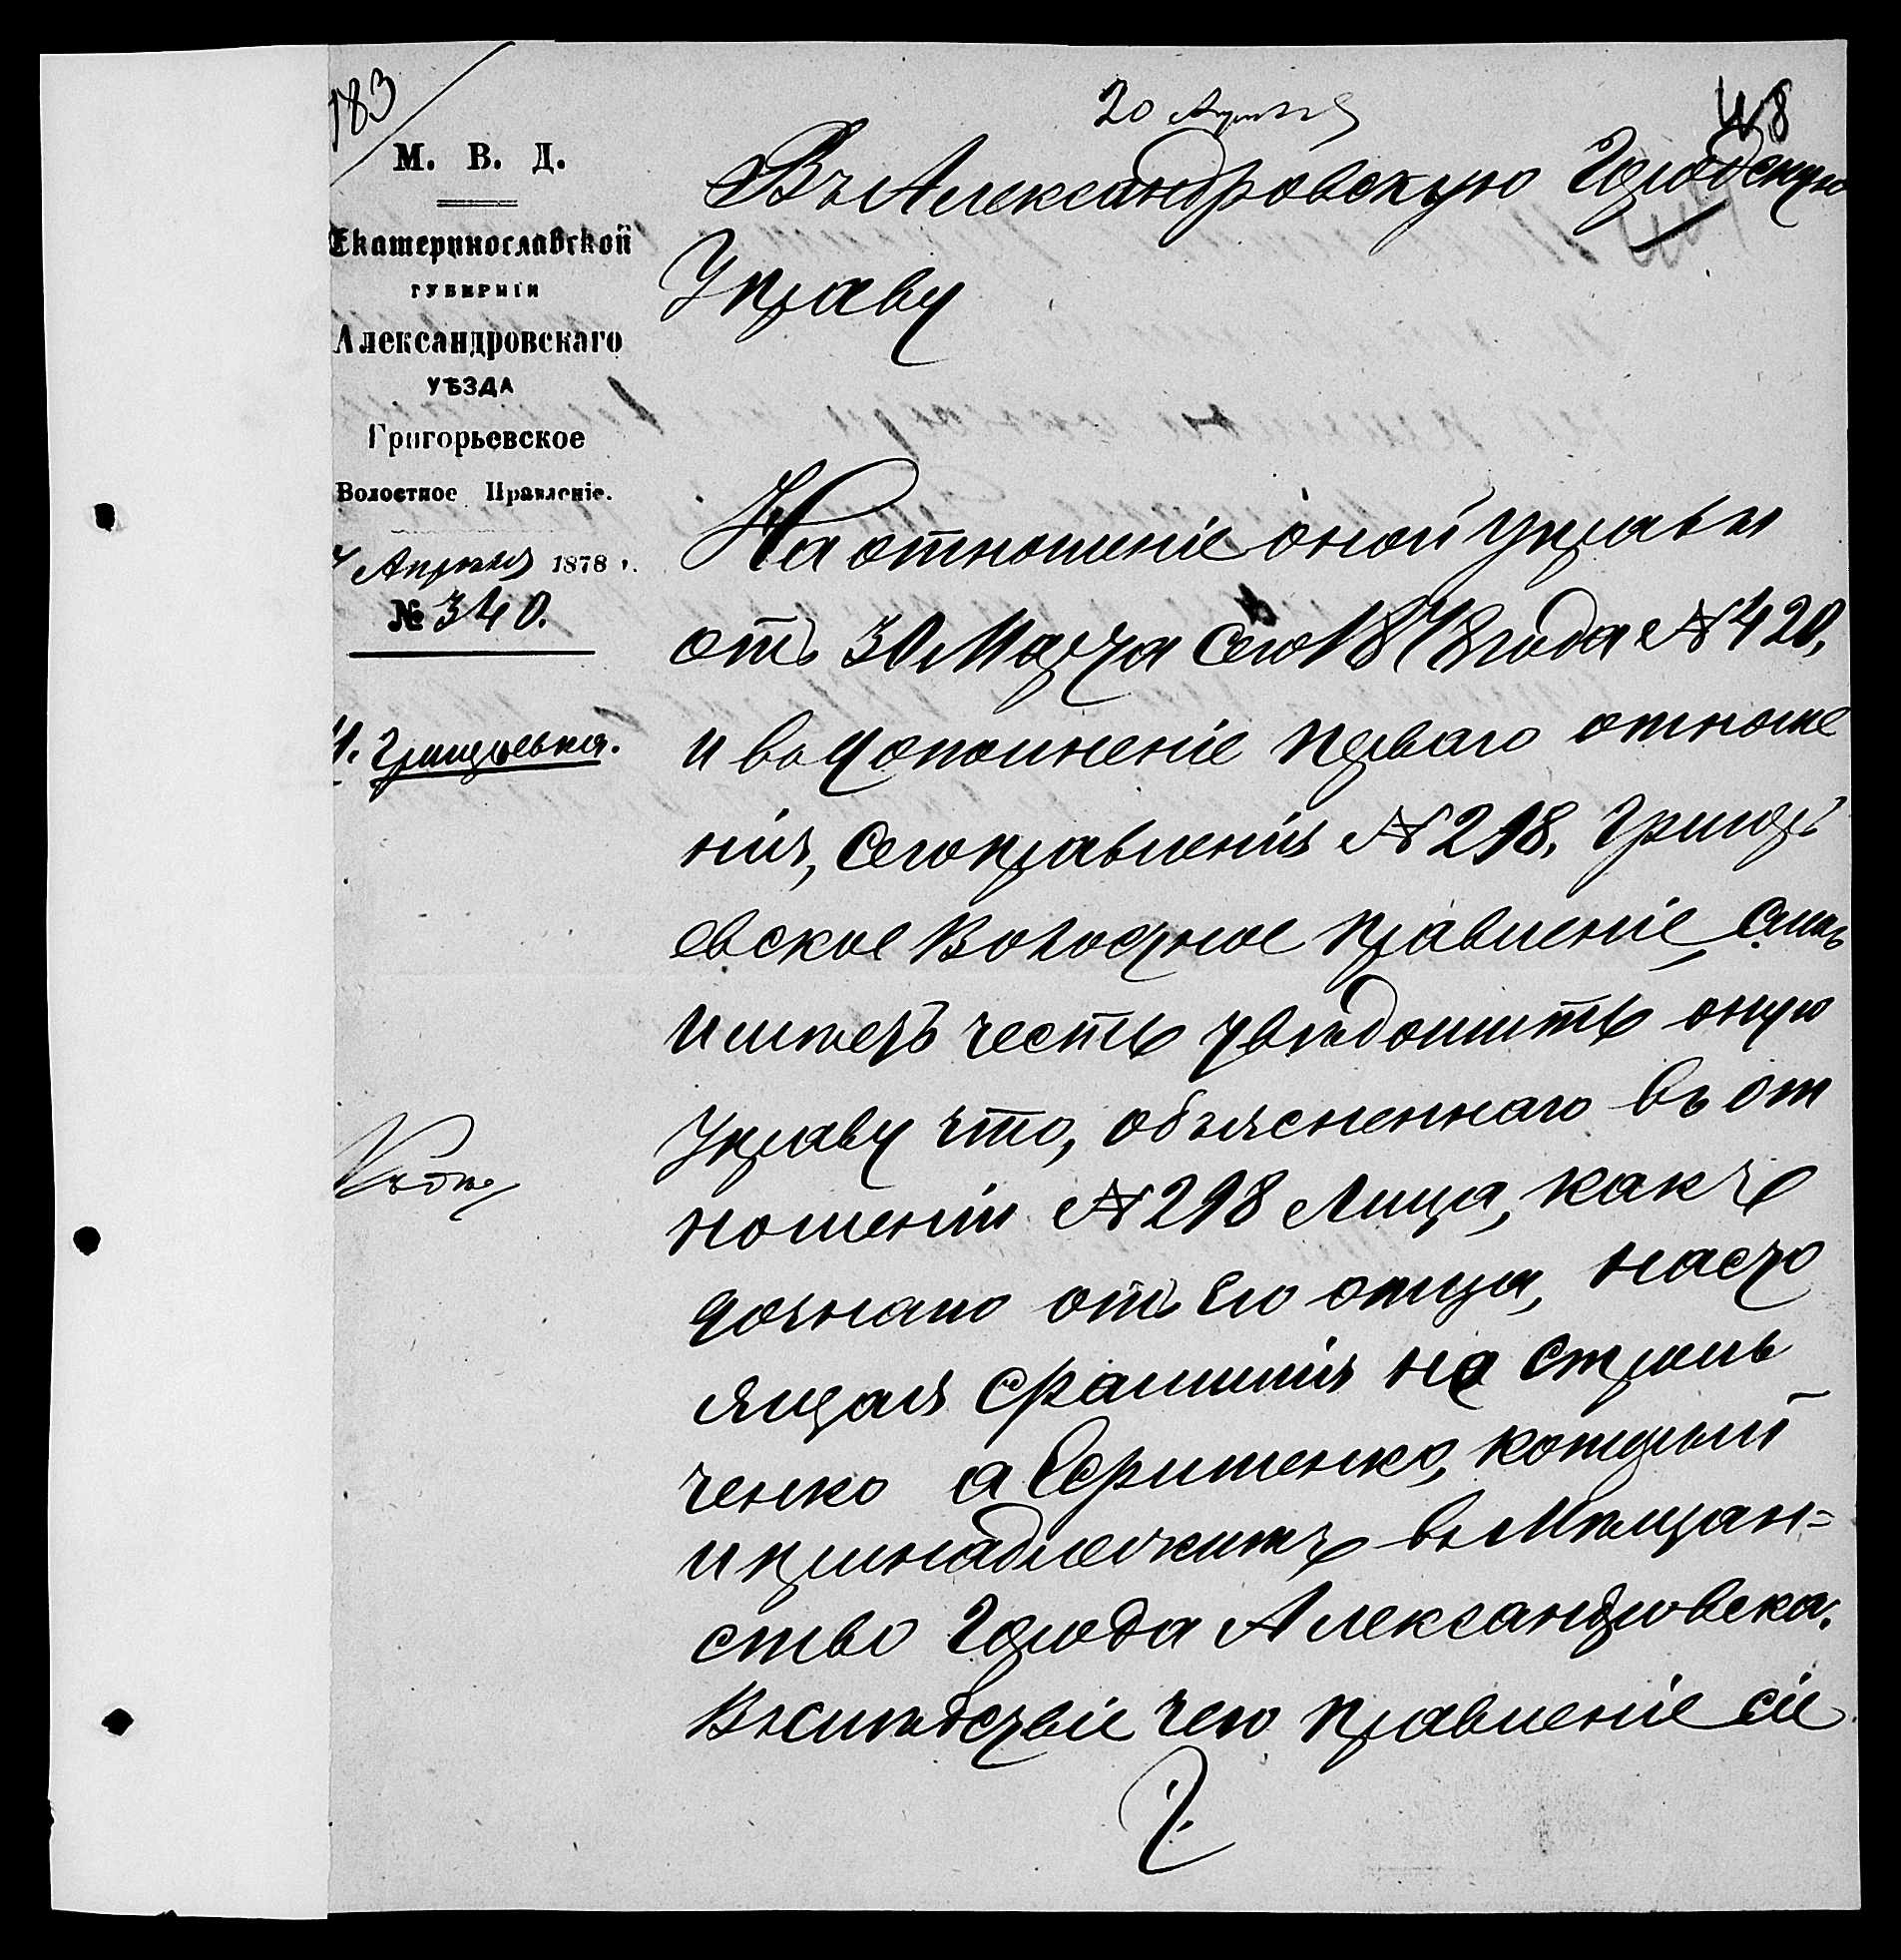 183
20 Апреля
48
М. В. Д.
Екатеринославской
ГУБЕРНІИ
Александровскаго
УѢЗДА
Григорьевское
Волостное Правленіе.
Апреля 1878 г.
№ 340.
Григорьевка.
Въ Александровскую Городскую
Управу
На отношеніе оной управы
отъ 30 Марта сего 1878 года № 420,
и въ дополненіе перваго отноше
нія, сего правленія № 298, Григорь
евское Волостное правленіе, симъ
имѣетъ честь увѣдомить оную
Управу что, объясненнаго въ от
ношеніи № 298 Лица, какъ
дознано отъ его отца, насто
ящая фамилія не Строиль
ченко а Ефименко, который
и принадлежитъ въ Мѣщан=
ство Города Александровска.
Вслѣдствіе чего правленіе сіе